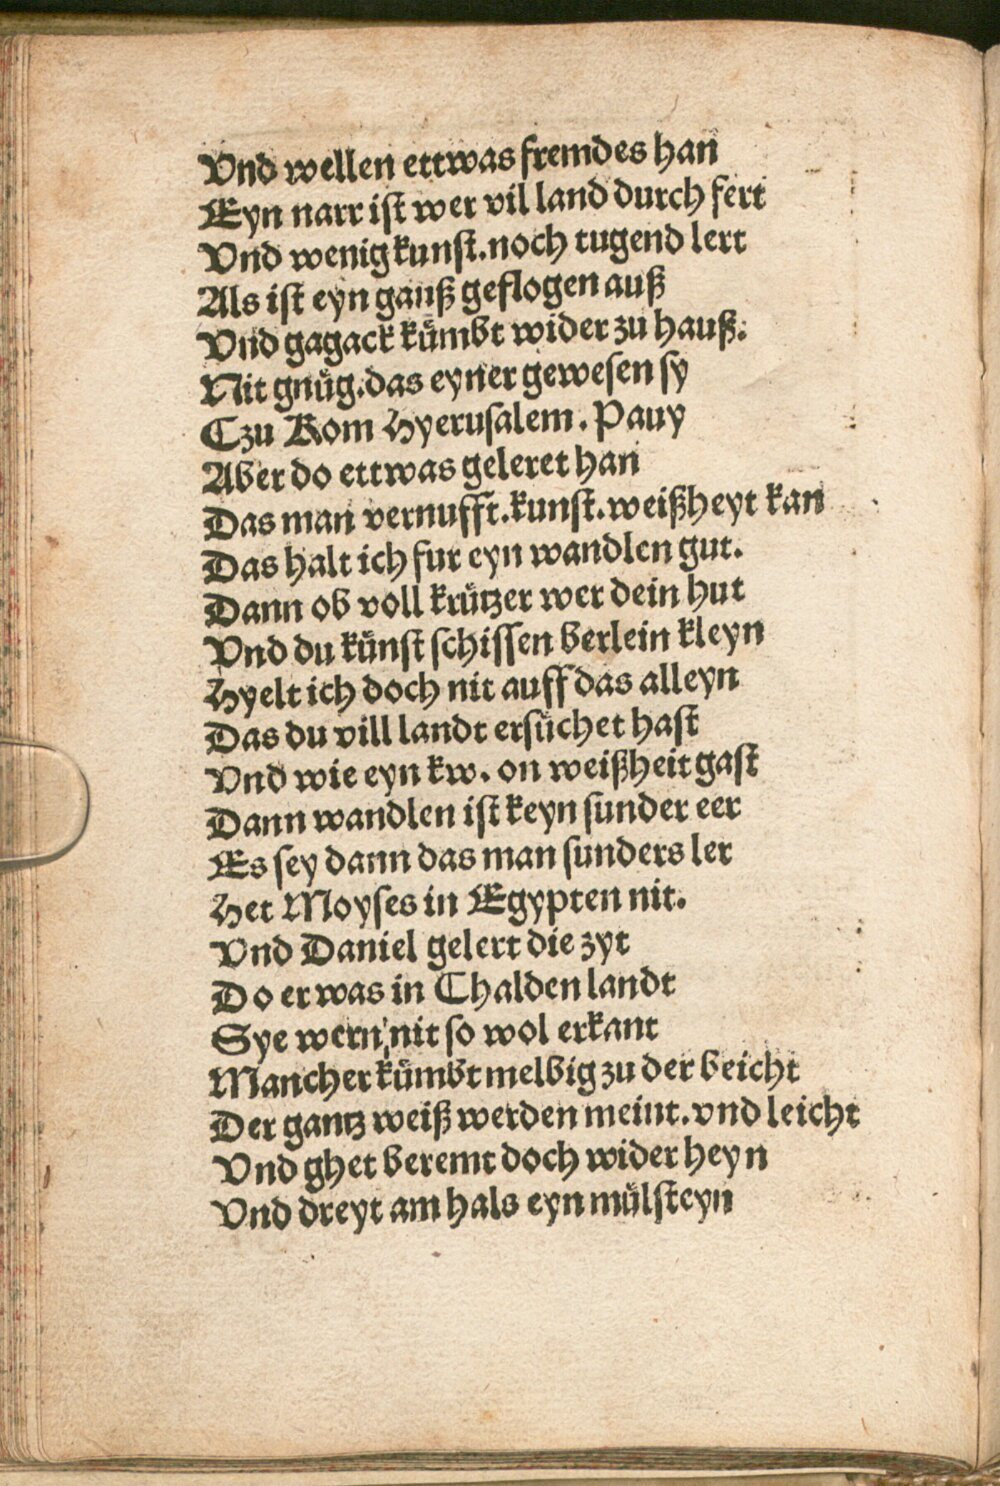 Vnd wellen ettwas fremdes han
Eyn narr ist wer vil land durch fert
Vnd wenig kunst.noch tugend lert
Als ist eyn gauß geflogen auß
Vnd gagack kümbt wider zu hauß.
Nit gnůg.das eyner gewesen sy
Czu Rom Hyerusalem. Pauy
Aber do ettwas geleret han
Das man vernufft.kunst.weißheyt kan
Das halt ich fur eyn wandlen gut.
Dann ob voll krützer wer dein hut
Vnd du künst schissen berlein kleyn
Hyelt ich doch nit auff das alleyn
Das du vill landt ersůchet hast
Vnd wie eyn kw. on weißheit gast
Dann wandlen ist keyn sunder eer
Es sey dann das man sunders ler
Het Moyses in Egypten nit.
Vnd Daniel gelert die zyt
Do er was in Chalden landt
Sye wern nit so wol erkant
Mancher kümbt melbig zu der beicht
Der gantz weiß werden meint.vnd leicht
Vnd ghet beremt doch wider heyn
Vnd dreyt am hals eyn mülsteyn